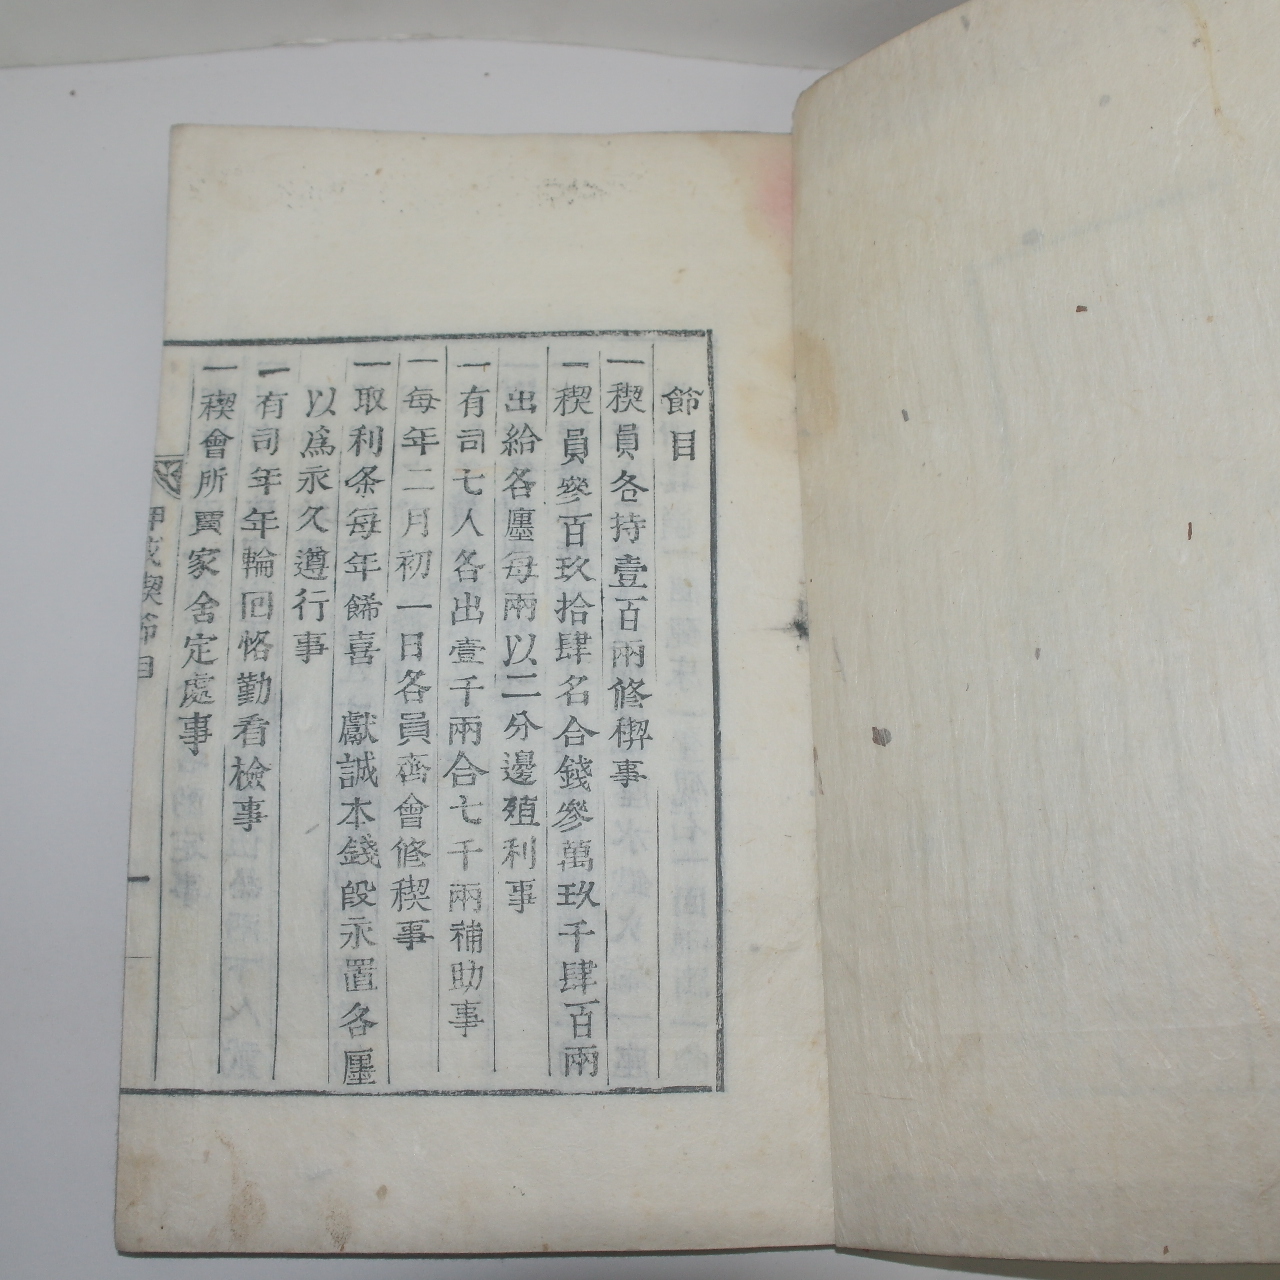 節目
一稧員各持壹百兩修稧事
一稧員參百玖拾肆名合錢參萬玖千肆百兩
出給各廛每兩以二分邊殖利事
一有司七人各出壹千兩合七千兩補助事
一每年二月初一日各員齊會修稧事
一取利条每年餙喜 獻誠本錢段永置各廛
以爲永久遵行事
一有司年年輪回恪勤看檢事
一稧會所買家舍定處事
甲戌稧節目
一